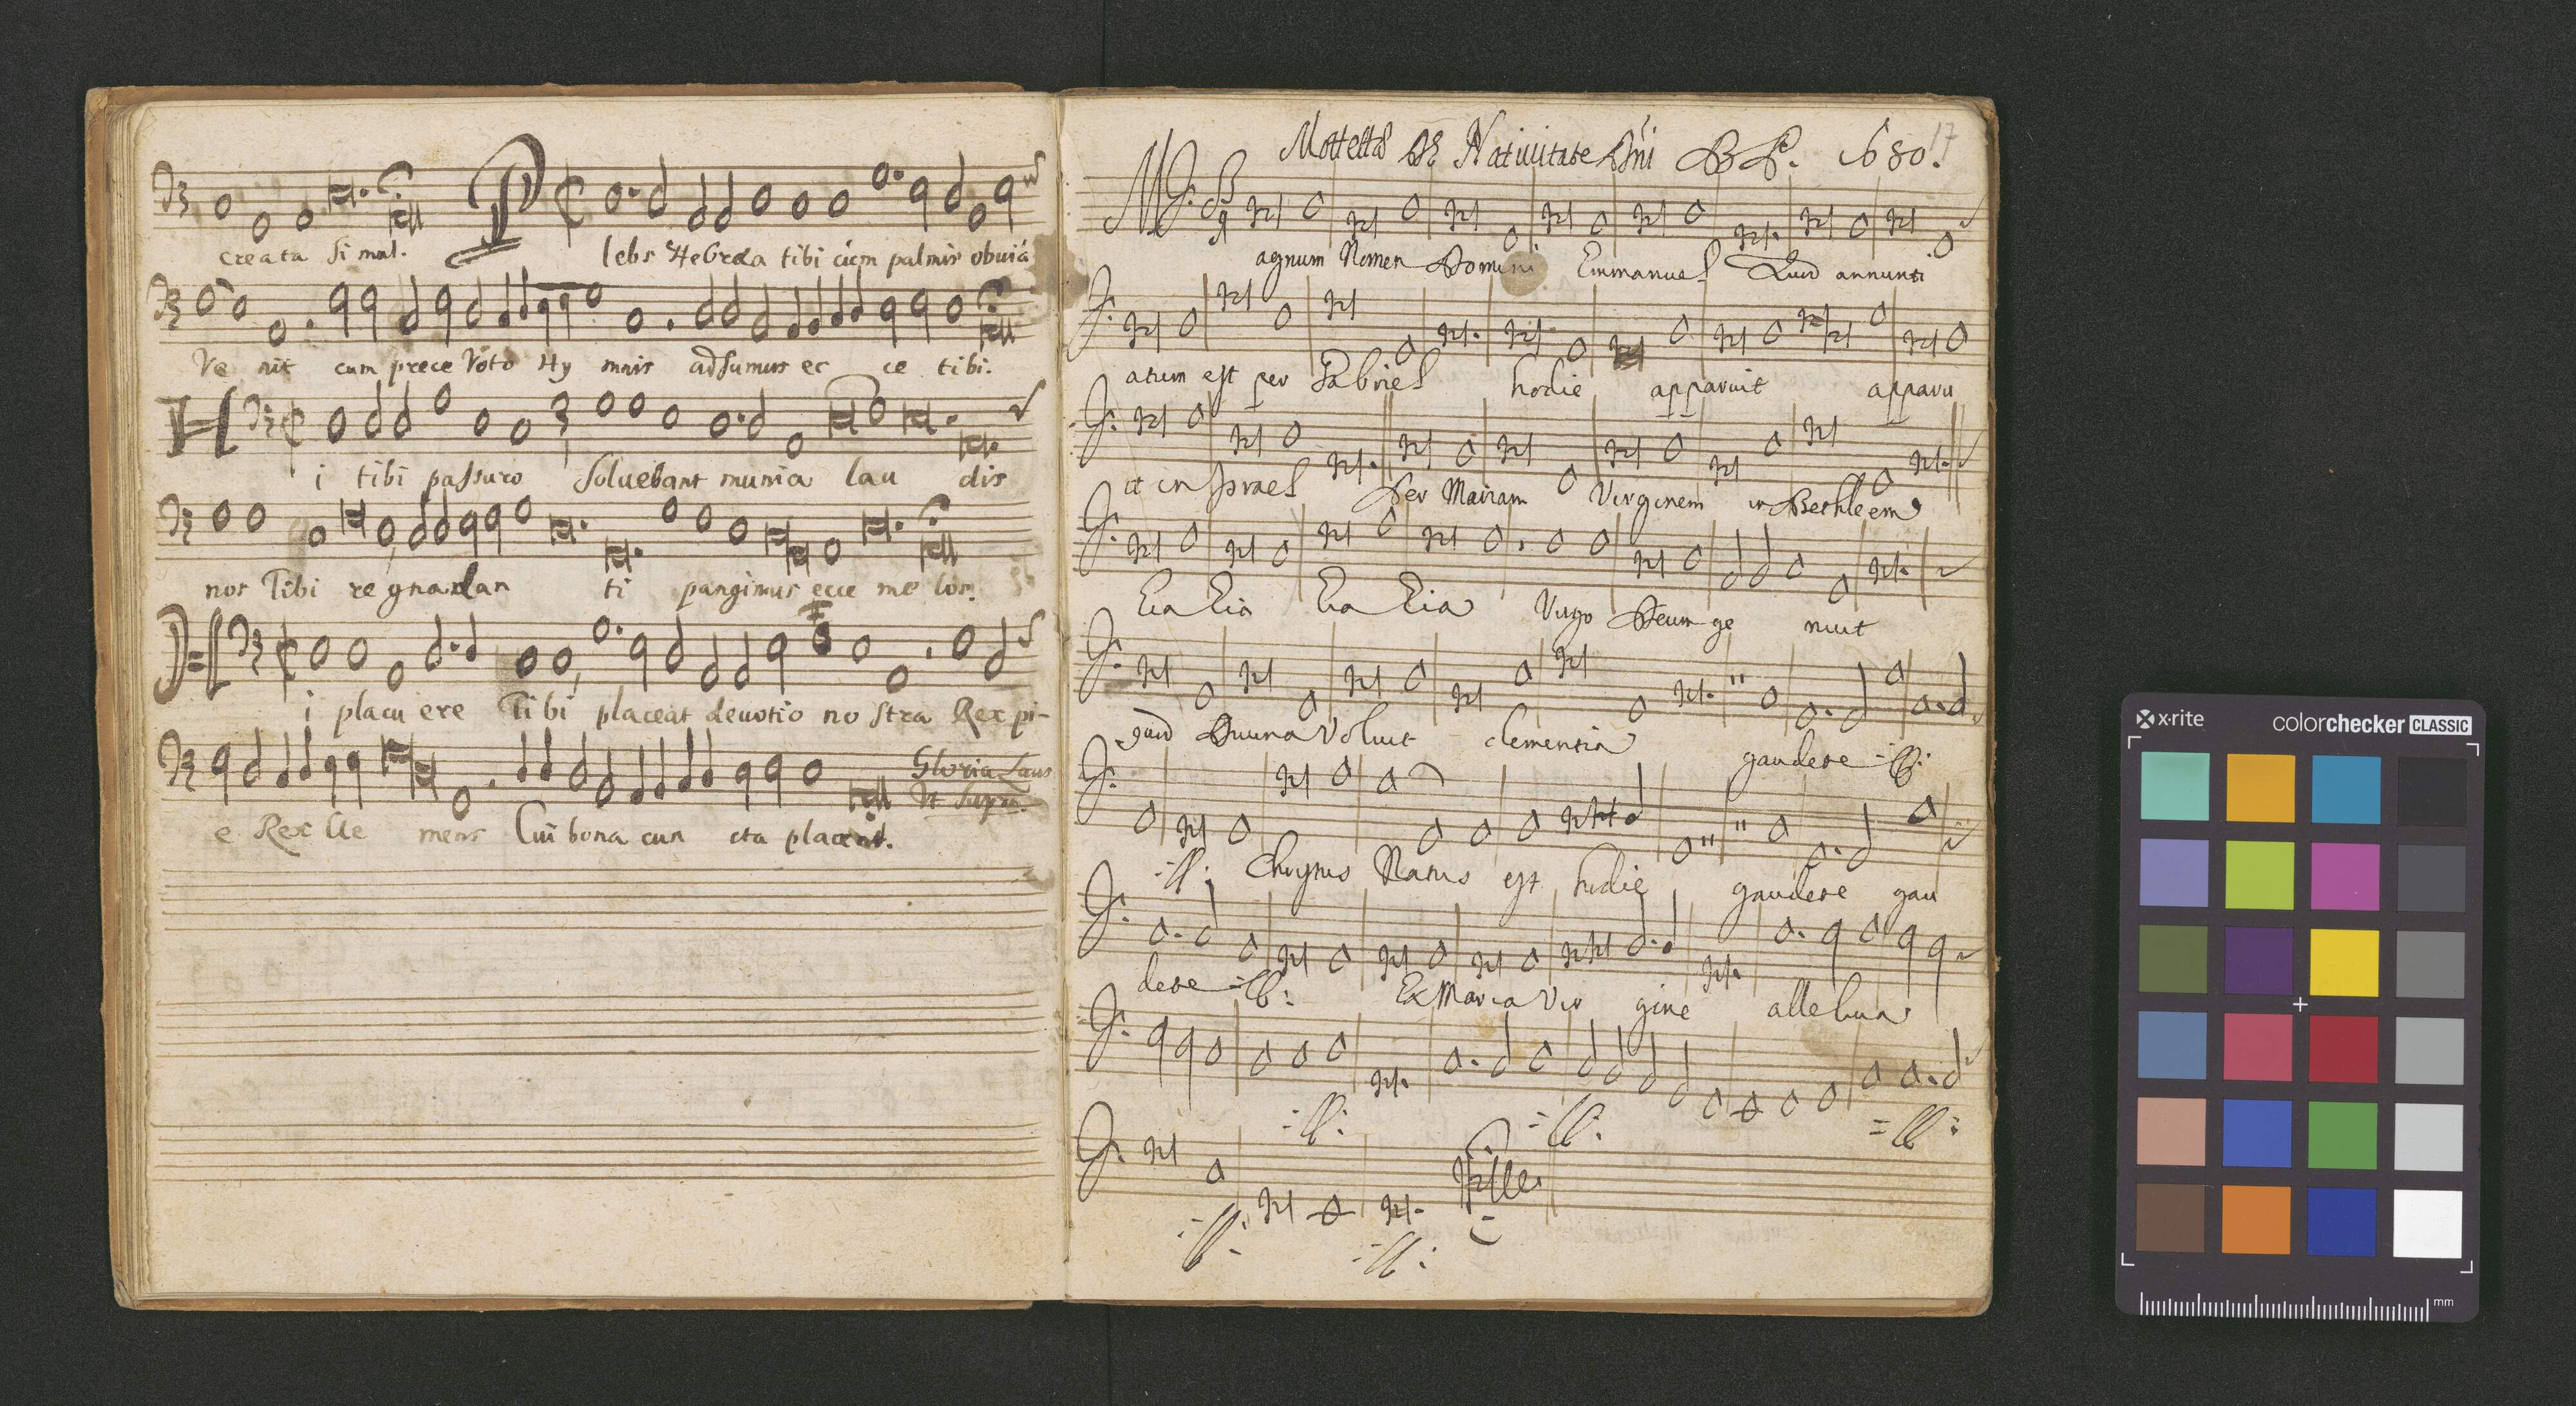 creata simul. Plebs Hebræa tibi cùm palmis obuiá
Ve nit cum prece Voto Hy mnis adsumus ec ce tibi.
Hi tibi passuro soluebant munia lau dis
nos Tibi re gnaxlan ti pangimus ecce me los.
Hi placu ere Tibi placeat deuotio no stra Rex pi-
e Rex Cle mens Cui bona cun cta placent.
Gloria Laus
Vt supra.
Mottetta De Natiuitate Dñi B. P. 1680.
17
Magnum Nomen Domini Emmanuel Quod annunti
atum est per Gabriel hodie apparuit apparu
it in Israel Per Mairam Virginem in Bethleem
Eia Eia Eia Eia Virgo Deum ge nuit
quid Diuina Voluit clementia gaudete :ll:
:ll: Christus Natus est hodie gaudete gau
dete :ll: Ex Maria Vir gine alleluia
:ll: :ll: :ll:
:ll: :ll:
x-rite
colorchecker CLASSIC
mm